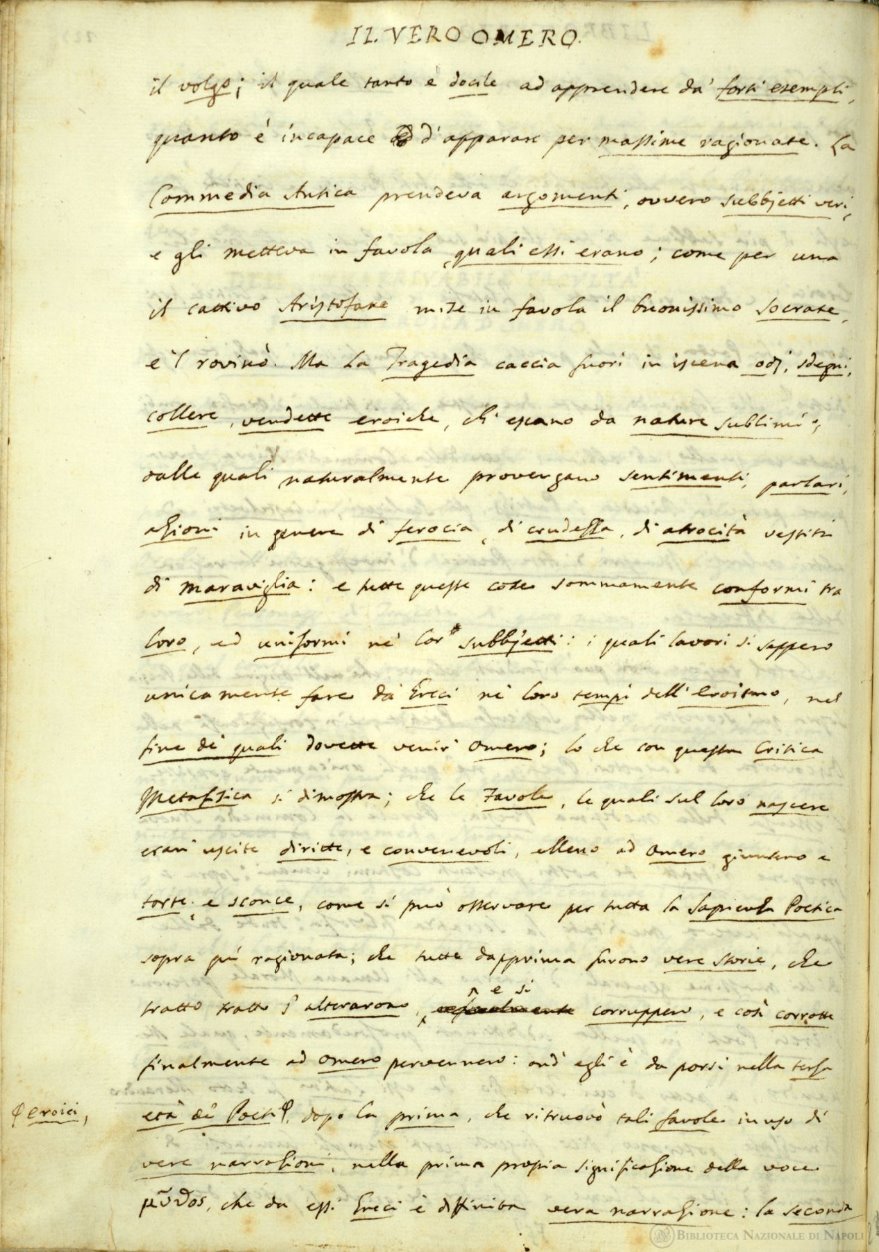 IL VERO OMERO.
il volgo; il quale tanto è docile ad apprendere da' forti esempli,
quanto è incapace d'apparare per massime ragionate. La
Commedia Antica prendeva argomenti, ovvero subbjetti veri,
e gli metteva in favola, quali essi erano; come per una
il cattivo Aristofane mise in favola il buonissimo Socrate,
e 'l rovinò. Ma La Tragedia caccia fuori in iscena odj, sdegni,
collere, vendette eroiche, ch'escano da nature sublimi;
dalle quali naturalmente provengano sentimenti, parlari,
azioni in genere di ferocia, di crudezza, di atrocità vestiti
di maraviglia: e tutte queste cose sommamente conformi tra
loro, ed uniformi ne' lor subbjetti: i quali lavori si seppero
unicamente fare da' Greci ne' loro tempi dell'eroismo, nel
fine de' quali dovette venir' Omero; lo che con questa Critica
Metafisica si dimostra; che le Favole, le quali sul loro nascere
eran' uscite diritte, e convenevoli, elleno ad Omero giunsero e
torte, e sconce, come si può osservare per tutta la Sapienza Poetica
sopra quì ragionata; che tutte dapprima furono vere storie, che
tratto tratto s'alterarono, e si corruppero, e così corrotte
finalmente ad Omero pervennero: ond' egli è da porsi nella terza
età de' Poeti eroici, dopo la prima, che ritruovò tali favole in uso di
vere narrazioni, nella prima propia significazione della voce
μῦθος, che da essi Greci è diffinita vera narrazione: la seconda
BIBLIOTECA NAZIONALE DI NAPOLI